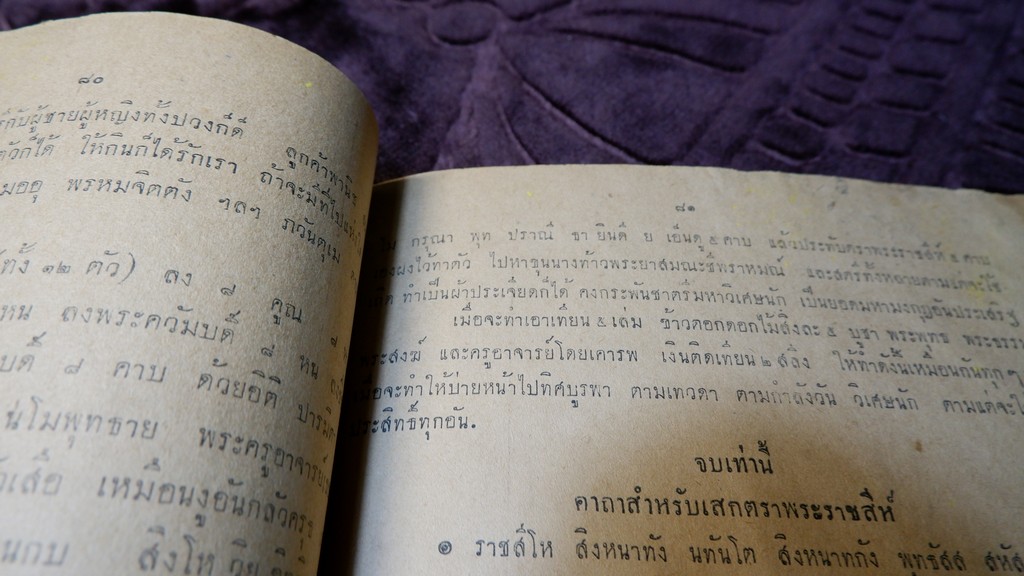 ๘๐
กับผู้ชายผู้หญิงทั้งปวงก็ดี ลูกค้าพานิช
ตัวก็ได้ ให้กินก็ได้รักเรา ถ้าจะมีที่ไปแห่ง
มออุ พรหมจิตตัง ฯลฯ ภวันตุเม
(ทั้ง ๑๒ ตัว) ลง ๘ คูณ
หน ลงพระควัมบดี ๘ หน
บดี ๘ คาบ ด้วยอิติ ปารมิตา
น่โมพุทธาย พระครูอาจารย์
เสือ เหมือนงูอันกลัวครุฑ
นกบ สิงโห
๘๑
กรุณา พุท ปราณี ธา ยินดี ย เอ็นดู ๕ คาบ แล้วประทับตราพระราชสีห์ ๑ คาบ
ผงไว้ทาตัว ไปหาขุนนางท้าวพระยาสมณะชีพราหมณ์ และสตรีทั้งหลายตามแต่จะใช้
ทำเป็นผ้าประเจียดก็ได้ คงกระพันชาตรีมหาวิเศษนัก เป็นยอดมหามงกุฎอันประเสริฐ
เมื่อจะทำเอาเทียน ๕ เล่ม ข้าวดอกดอกไม้สิ่งละ ๕ บูชา พระพุทธ พระธรรม
พระสงฆ์ และครูอาจารย์โดยเคารพ เงินติดเทียน ๒ สลึง ให้ทำดังนี้เหมือนกันทุกๆ
เมื่อจะทำให้บ่ายหน้าไปทิศบูรพา ตามเทวดา ตามกำลังวัน วิเศษนัก ตามแต่จะใช้
ประสิทธิ์ทุกอัน.
จบเท่านี้
คาถาสำหรับเสกตราพระราชสีห์
๑ ราชสีโห สิงหนาทัง นทันโต สิงหนาทกัง พุทธัสส สหัส